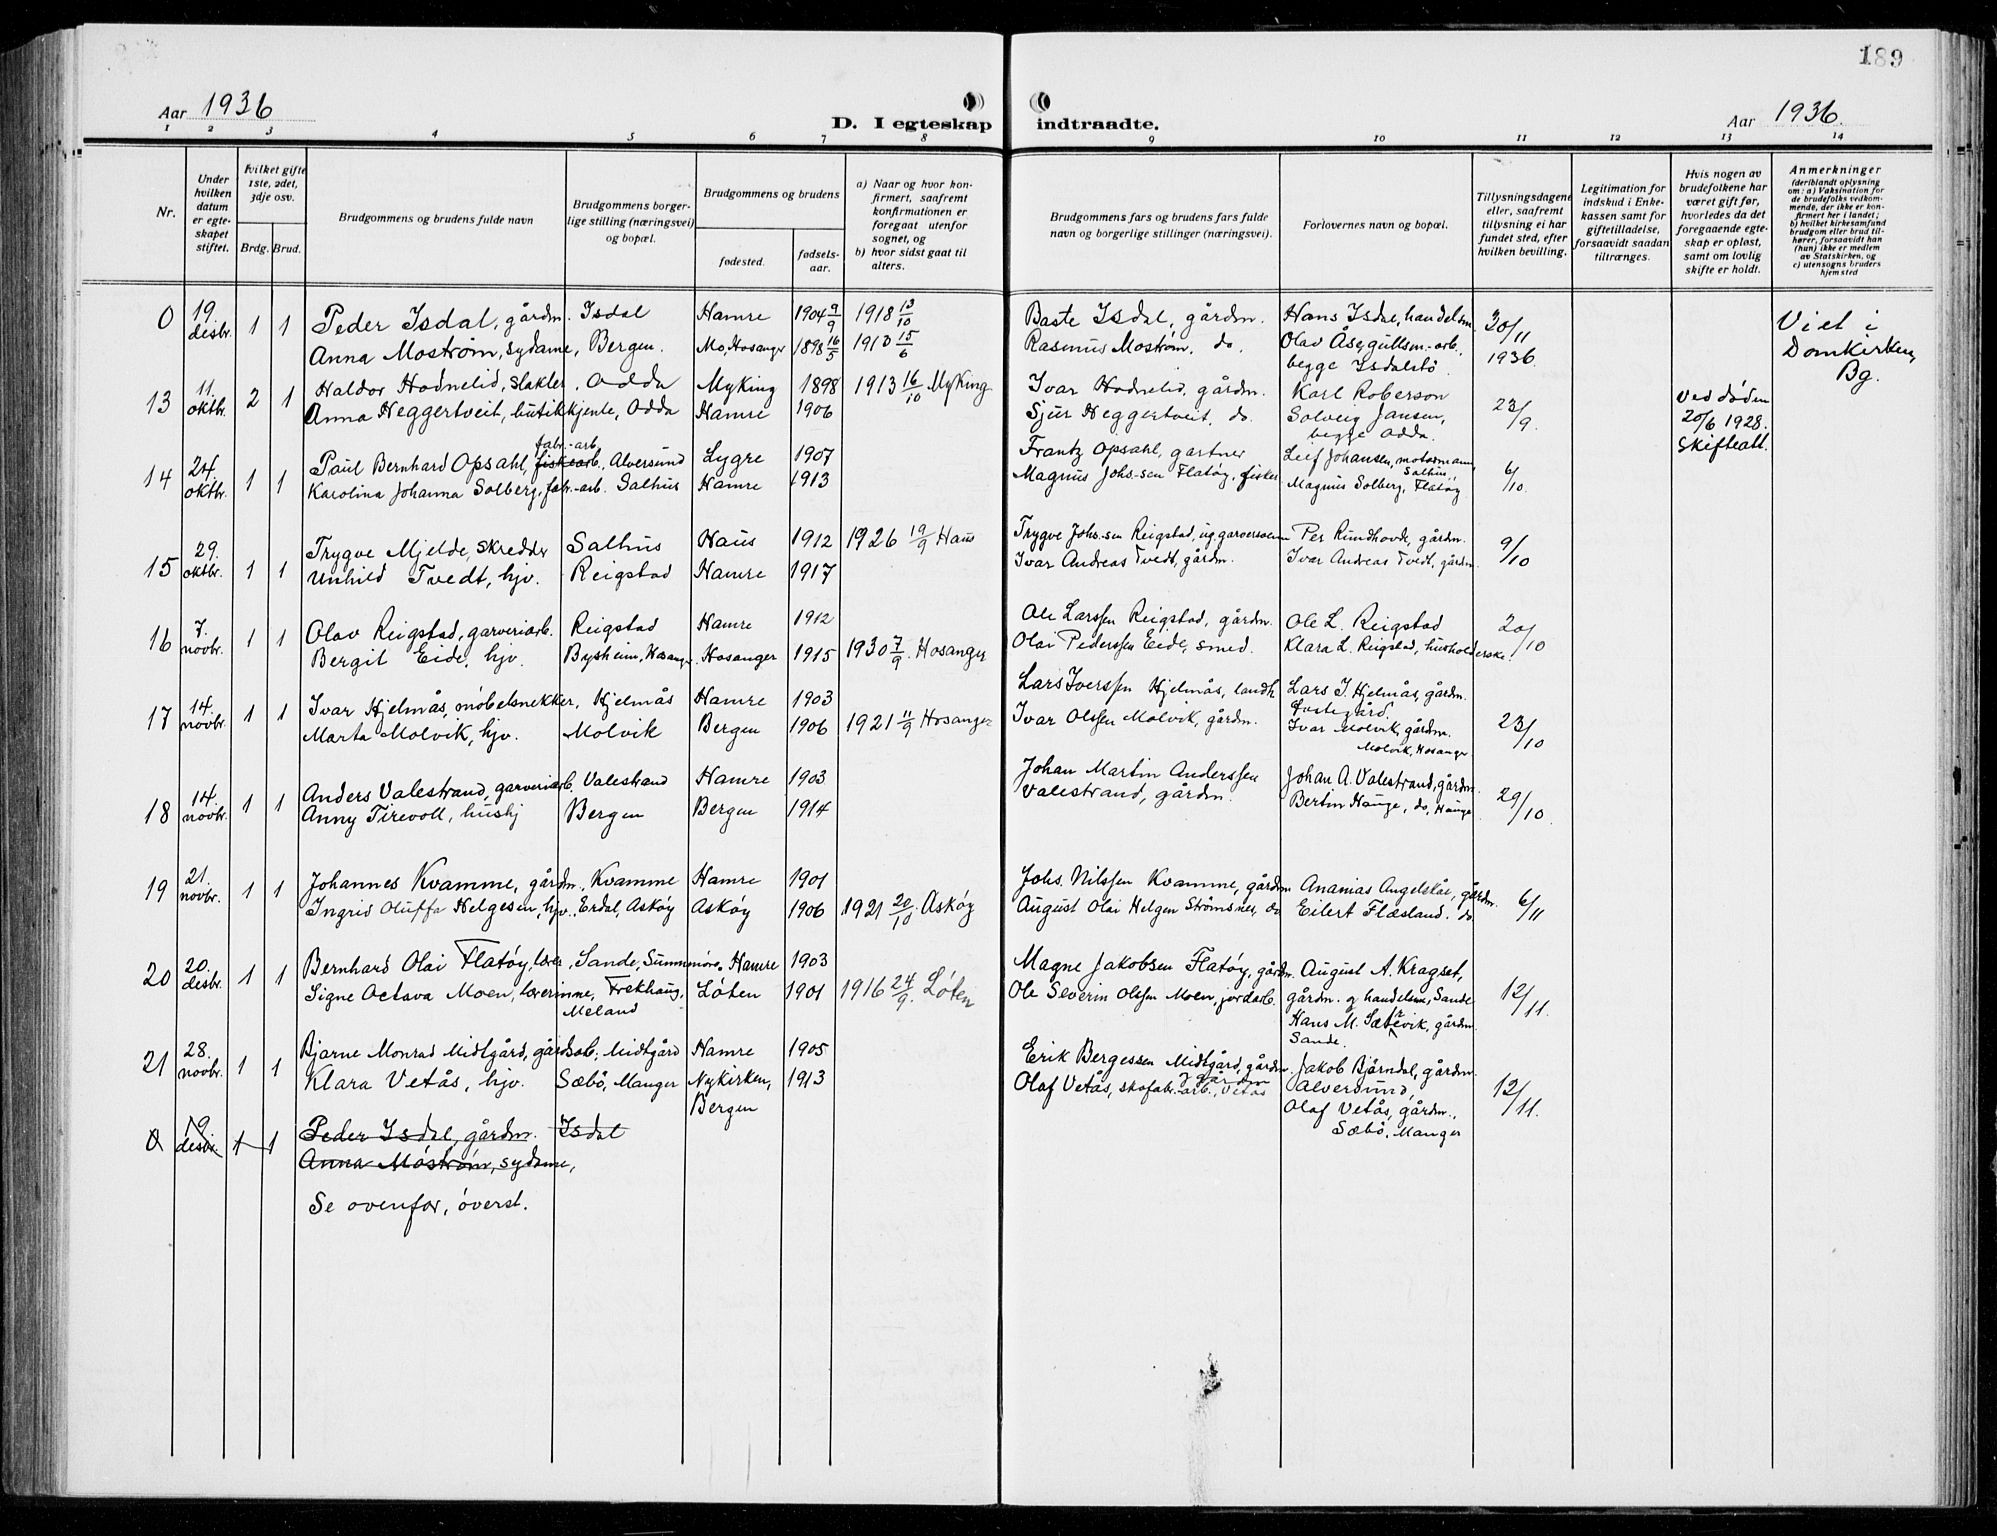 189
Aar 1936
D. I egteskap indtraadte.
Aar 1936.
1 2 3 4 5 6 7 8 9 10 11 12 13 14
Nr.
Under hvilken datum er egteskapet stiftet.
hvilket gifte 1ste, 2det, 3dje osv.
Brdg. Brud.
Brudgommens og brudens fulde navn
Brudgommens borgerlige stilling (næringsvei) og bopæl.
Brudgommens og brudens
fødested.
fødselsaar.
a) Naar og hvor konfirmert, saafremt konfirmationen er foregaat utenfor sognet, og
b) hvor sidst gaat til alters.
Brudgommens fars og brudens fars fulde navn og borgerlige stillinger (næringsvei).
Forlovernes navn og bopæl.
Tillysningsdagene eller, saafremt tillysning ei har fundet sted, efter hvilken bevilling.
Legitimation for indskud i Enkekassen samt for giftetilladelse, forsaavidt saadan tiltrænges.
Hvis nogen av brudefolkene har været gift før, hvorledes da det foregaaende egteskap er opløst, samt om lovlig skifte er holdt.
Anmerkninger
(deriblandt oplysning om: a) Vaksination for de brudefolks vedkommende, der ikke er konfirmert her i landet; b) hvilket kirkesamfund brudgom eller brud tilhører, forsaavidt han (hun) ikke er medlem av Statskirken, og c) utensogns bruders hjemsted
0 19. desbr. 1 1 Peder Isdal, gårdm. Isdal Hamre 1904 9/9 1918 13/10 Baste Isdal, gårdm. Hans Isdal, handelsm. 20/11 1936. Viet i Domkirken, Bg.
Anna Mostrøm, sydame, Bergen. Mo, Hosanger 1898 16/5 1913 15/6 Rasmus Mostrøm, do. Olav Åsegullsen - arb., begge Isdalstø
13 11. oktbr. 2 1 Haldor Hodnelid, slakter, Odda Myking 1898 1913 16/10 Myking Ivar Hodnelid, gårdm. Karl Roberson 23/9 Ved døden 20/6 1928. Skifteatt.
Anna Heggertveit, butikkjente, Odda Hamre 1906 Sjur Heggertveit, do. Solveig Jansen, begge Odda.
14 24. oktbr. 1 1 Paul Bernhard Opsahl, fabr.-arb. Alversund Lygre 1907 Frantz Opsahl, gartner Leif Johansen, motormann, Salhus 6/10.
Karolina Johanna Solberg, fabr.-arb. Salhus Hamre 1913 Magnus Johs-sen Flatøy, fisker Magnus Solberg, Flatøy
15 29. oktbr. 1 1 Trygve Mjelde, skredder Salhus Haus 1912 1926 19/9 Haus Trygve Johs-sen Reigstad, Per Rundhovde, gårdm. 9/10
Unhild Tvedt, hjv. Reigstad Hamre 1917 Ivar Andreas Tvedt, gårdm. Ivar Andreas Tvedt, gårdm.
16 7. novbr. 1 1 Olav Reigstad, garveriarb. Reigstad Hamre 1912 Ole Larssen Reigstad, gårdm. Ole L. Reigstad 20/10
Bergit Eide, hjv. Bysheim, Hosanger Hosanger 1915 1930 7/9. Hosanger Olai Pederssen Eide, smed. Klara L. Reigstad, husholderske.
17 14. novbr. 1 1 Ivar Hjelmås, møbelsnekker, Hjelmås Hamre 1903 Lars Iverssen Hjelmås, landh. Lars I. Hjelmås, gårdm. 23/10
Marta Molvik, hjv. Molvik Bergen 1906 1921 11/9 Hosanger Ivar Olssen Molvik, gårdm. Ivar Molvik, gårdm. Molvik, Hosanger
18 14. novbr. 1 1 Anders Valestrand, garveriarb, Valestrand Hamre 1903 Johan Martin Anderssen Valestrand, gårdm. Johan A. Valestrand, gårdm. 29/10.
Anny Tirevoll, hushj Bergen Bergen 1914 Bertin Hauge, do, Hauge
19 21. novbr. 1 1 Johannes Kvamme, gårdm, Kvamme Hamre 1901 Johs. Nilssen Kvamme, gårdm Ananias Angelskår, gårdm. 6/11
Ingrid Oluffa Helgesen, hjv. Erdal, Askøy Askøy 1906 1921 20/10. Askøy August Olai Helgen Strømsnes, do Eilert Flæsland. do
20 20. desbr. 1 1 Bernhard Olai Flatøy, lærer, Sande, Sunnmøre. Hamre 1903 Magne Jakobsen Flatøy, gårdm. August A. Kragset, gårdm. og handelsm, Sande 12/11.
Signe Octava Moen, lærerinne, Frekhaug, Meland Løten 1901 1916 24/9. Løten Ole Severin Olssen Moen, jordarb. Hans M. Sætrevik, gårdm. Sande.
21 28. novbr. 1 1 Bjarne Monrad Midtgård, gårdsarb; Midtgård Hamre 1905 Erik Bergessen Midtgård, gårdm. Jakob Bjørndal, gårdm. Alversund, 12/11.
Klara Vetås, hjv. Sæbø, Manger Nykirken, Bergen 1913 Olaf Vetås, skofabr.-arb., & gårdm Vetås Olaf Vetås, gårdm., Sæbø, Manger
0 19 desbr. 1 1 Peder Isdal, gårdm. Isdal
Anna Mostrøm, sydame,
Se ovenfor, øverst.